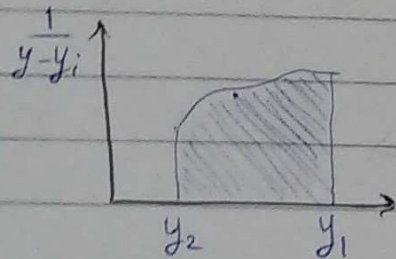 1
y-yᵢ
y₂ y₁